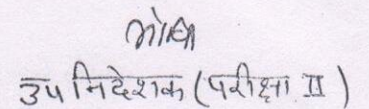 उप निदेशक (परीक्षा II)